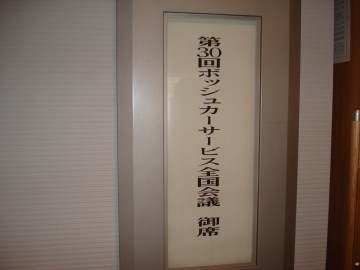 第30回ボッシュカーサービス全国会議　御席